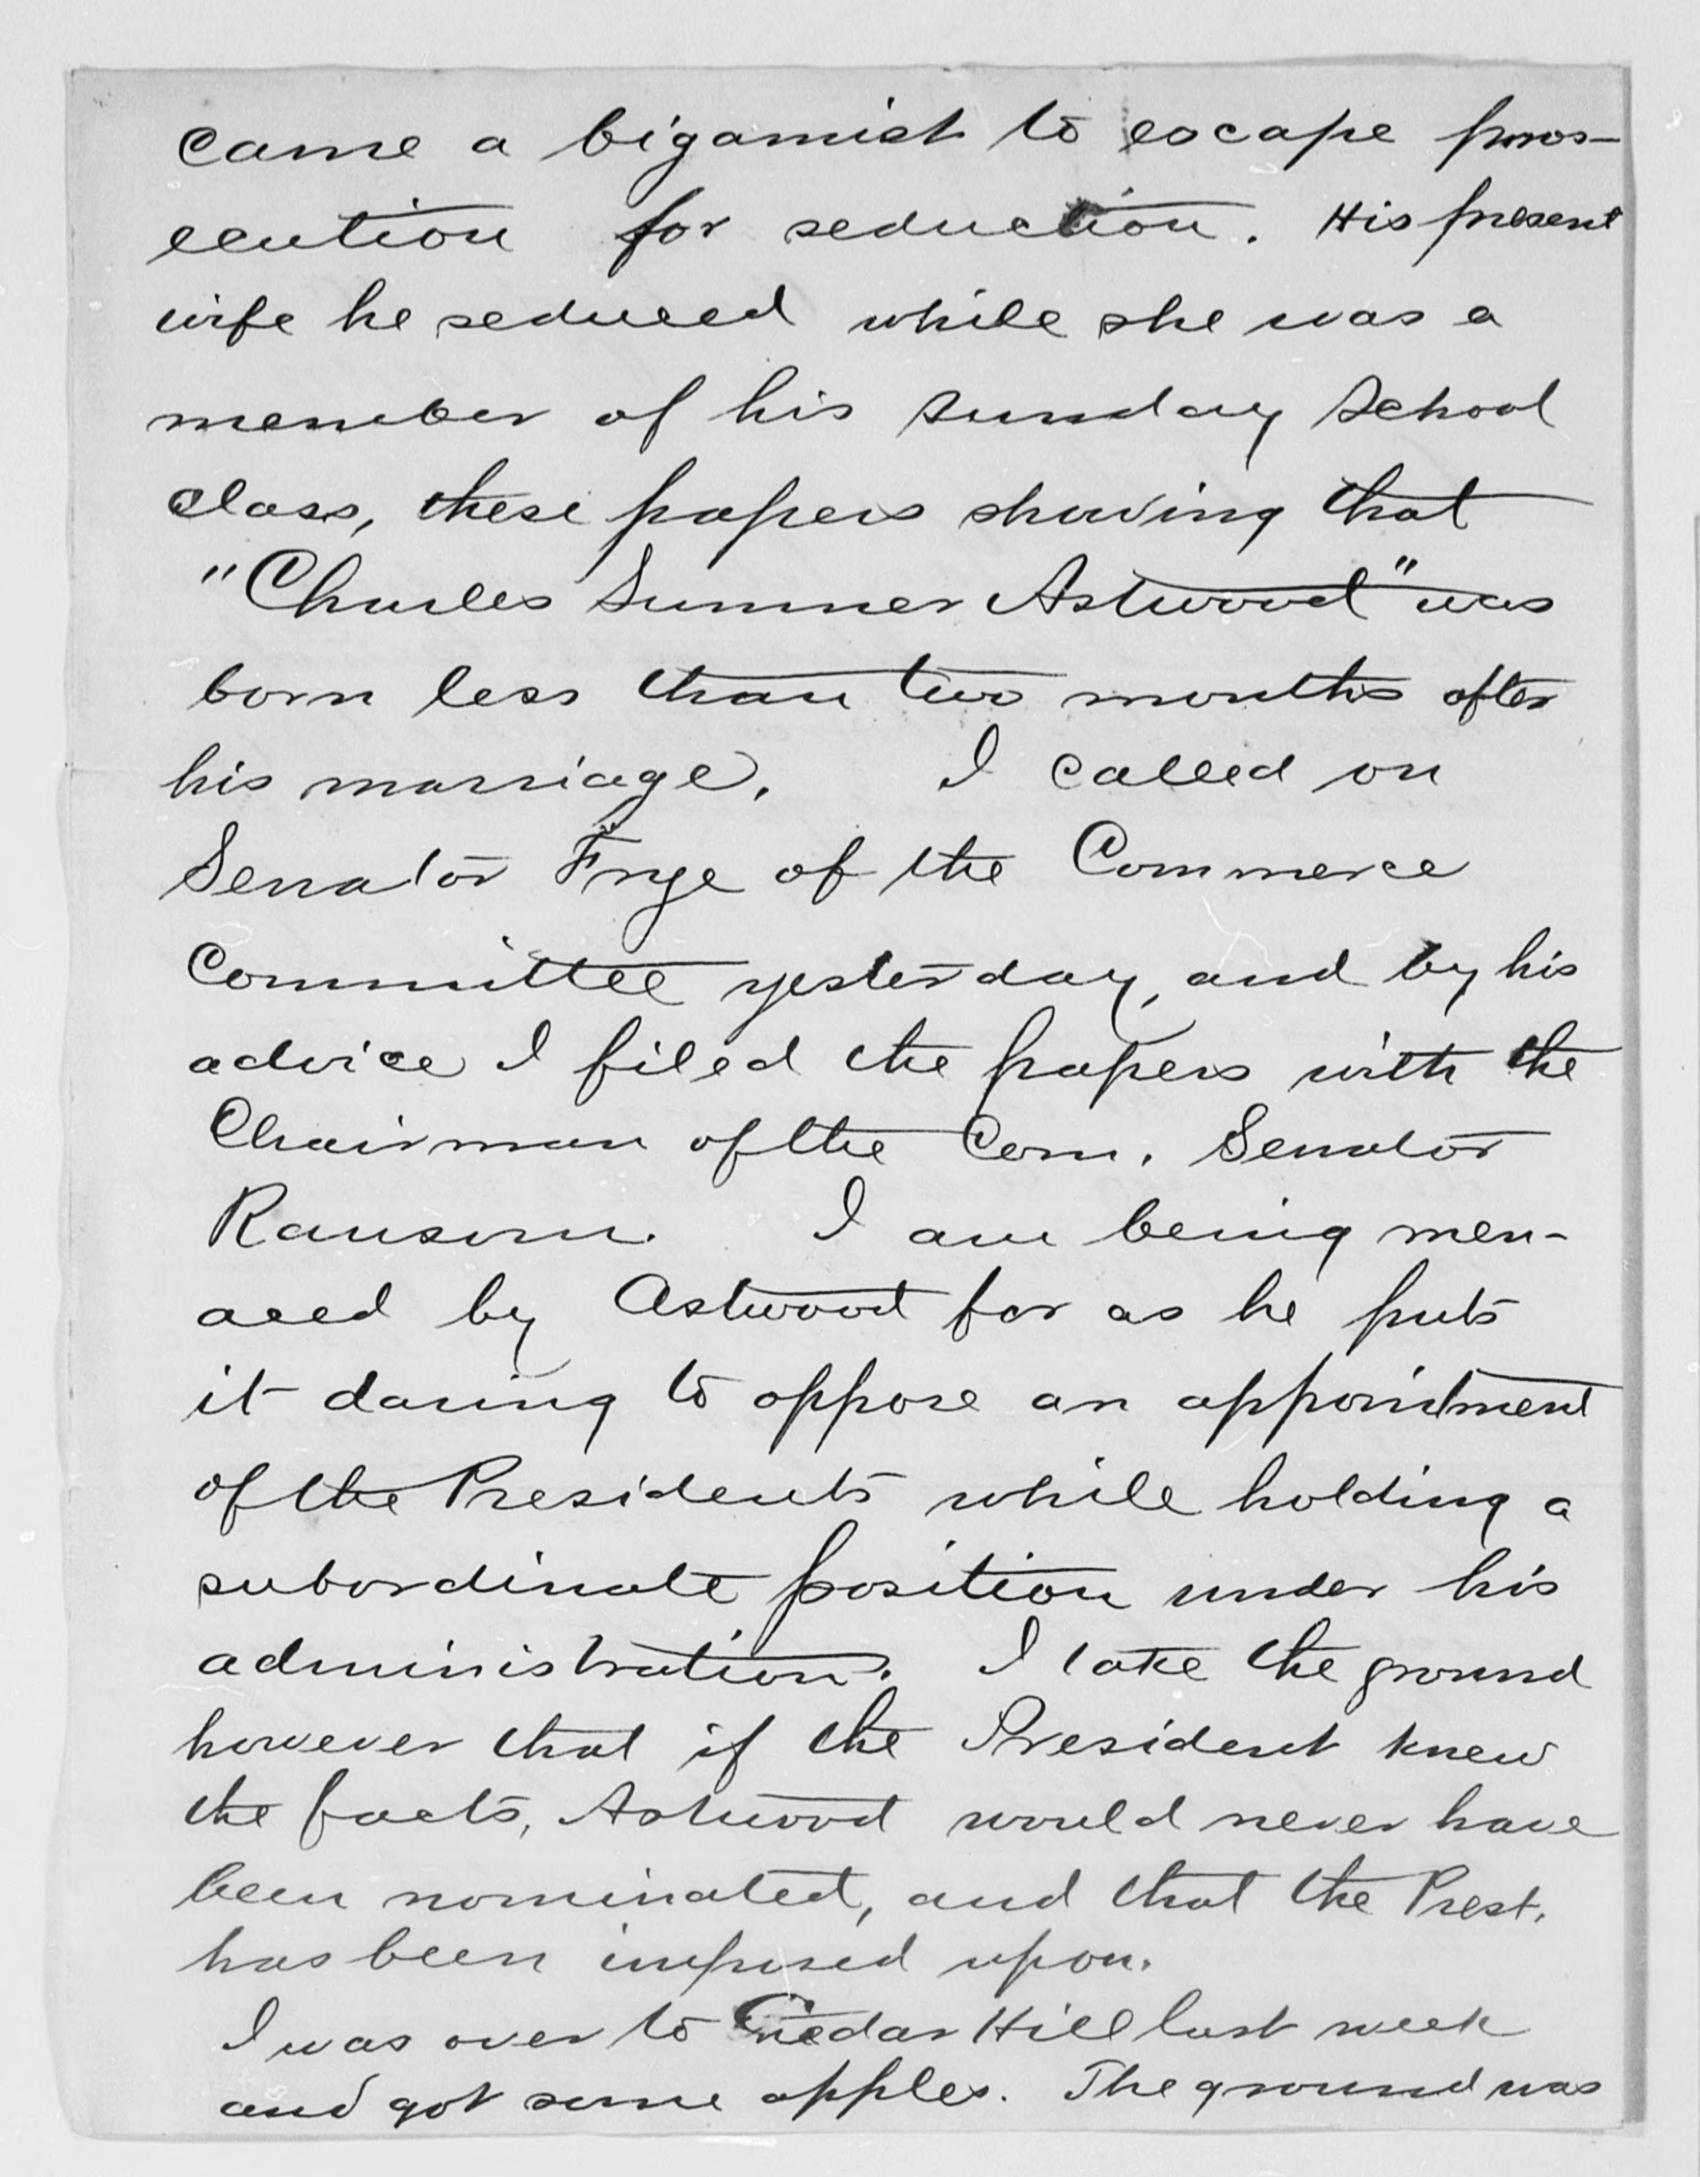 came a bigamist to escape pros-
ecution for seduction. His present
wife he seduced while she was a
member of his Sunday School
class, these papers showing that
"Charles Sumner Astwood" was
born less than two months after
his marriage. I called on
Senator Frye of the Commerce
Committee yesterday, and by his
advice I filed the papers with the
Chairman of the Com. Senator
Ransom. I am being men-
aced by Astwood for as he puts
it daring to oppose an appointment
of the Presidents while holding a
subordinate position under his
administration. I take the ground
however that if the President knew
the facts, Astwood would never have
been nominated, and that the Prest.
has been imposed upon.
I was over to Cedar Hill last week
and got some apples. The ground was